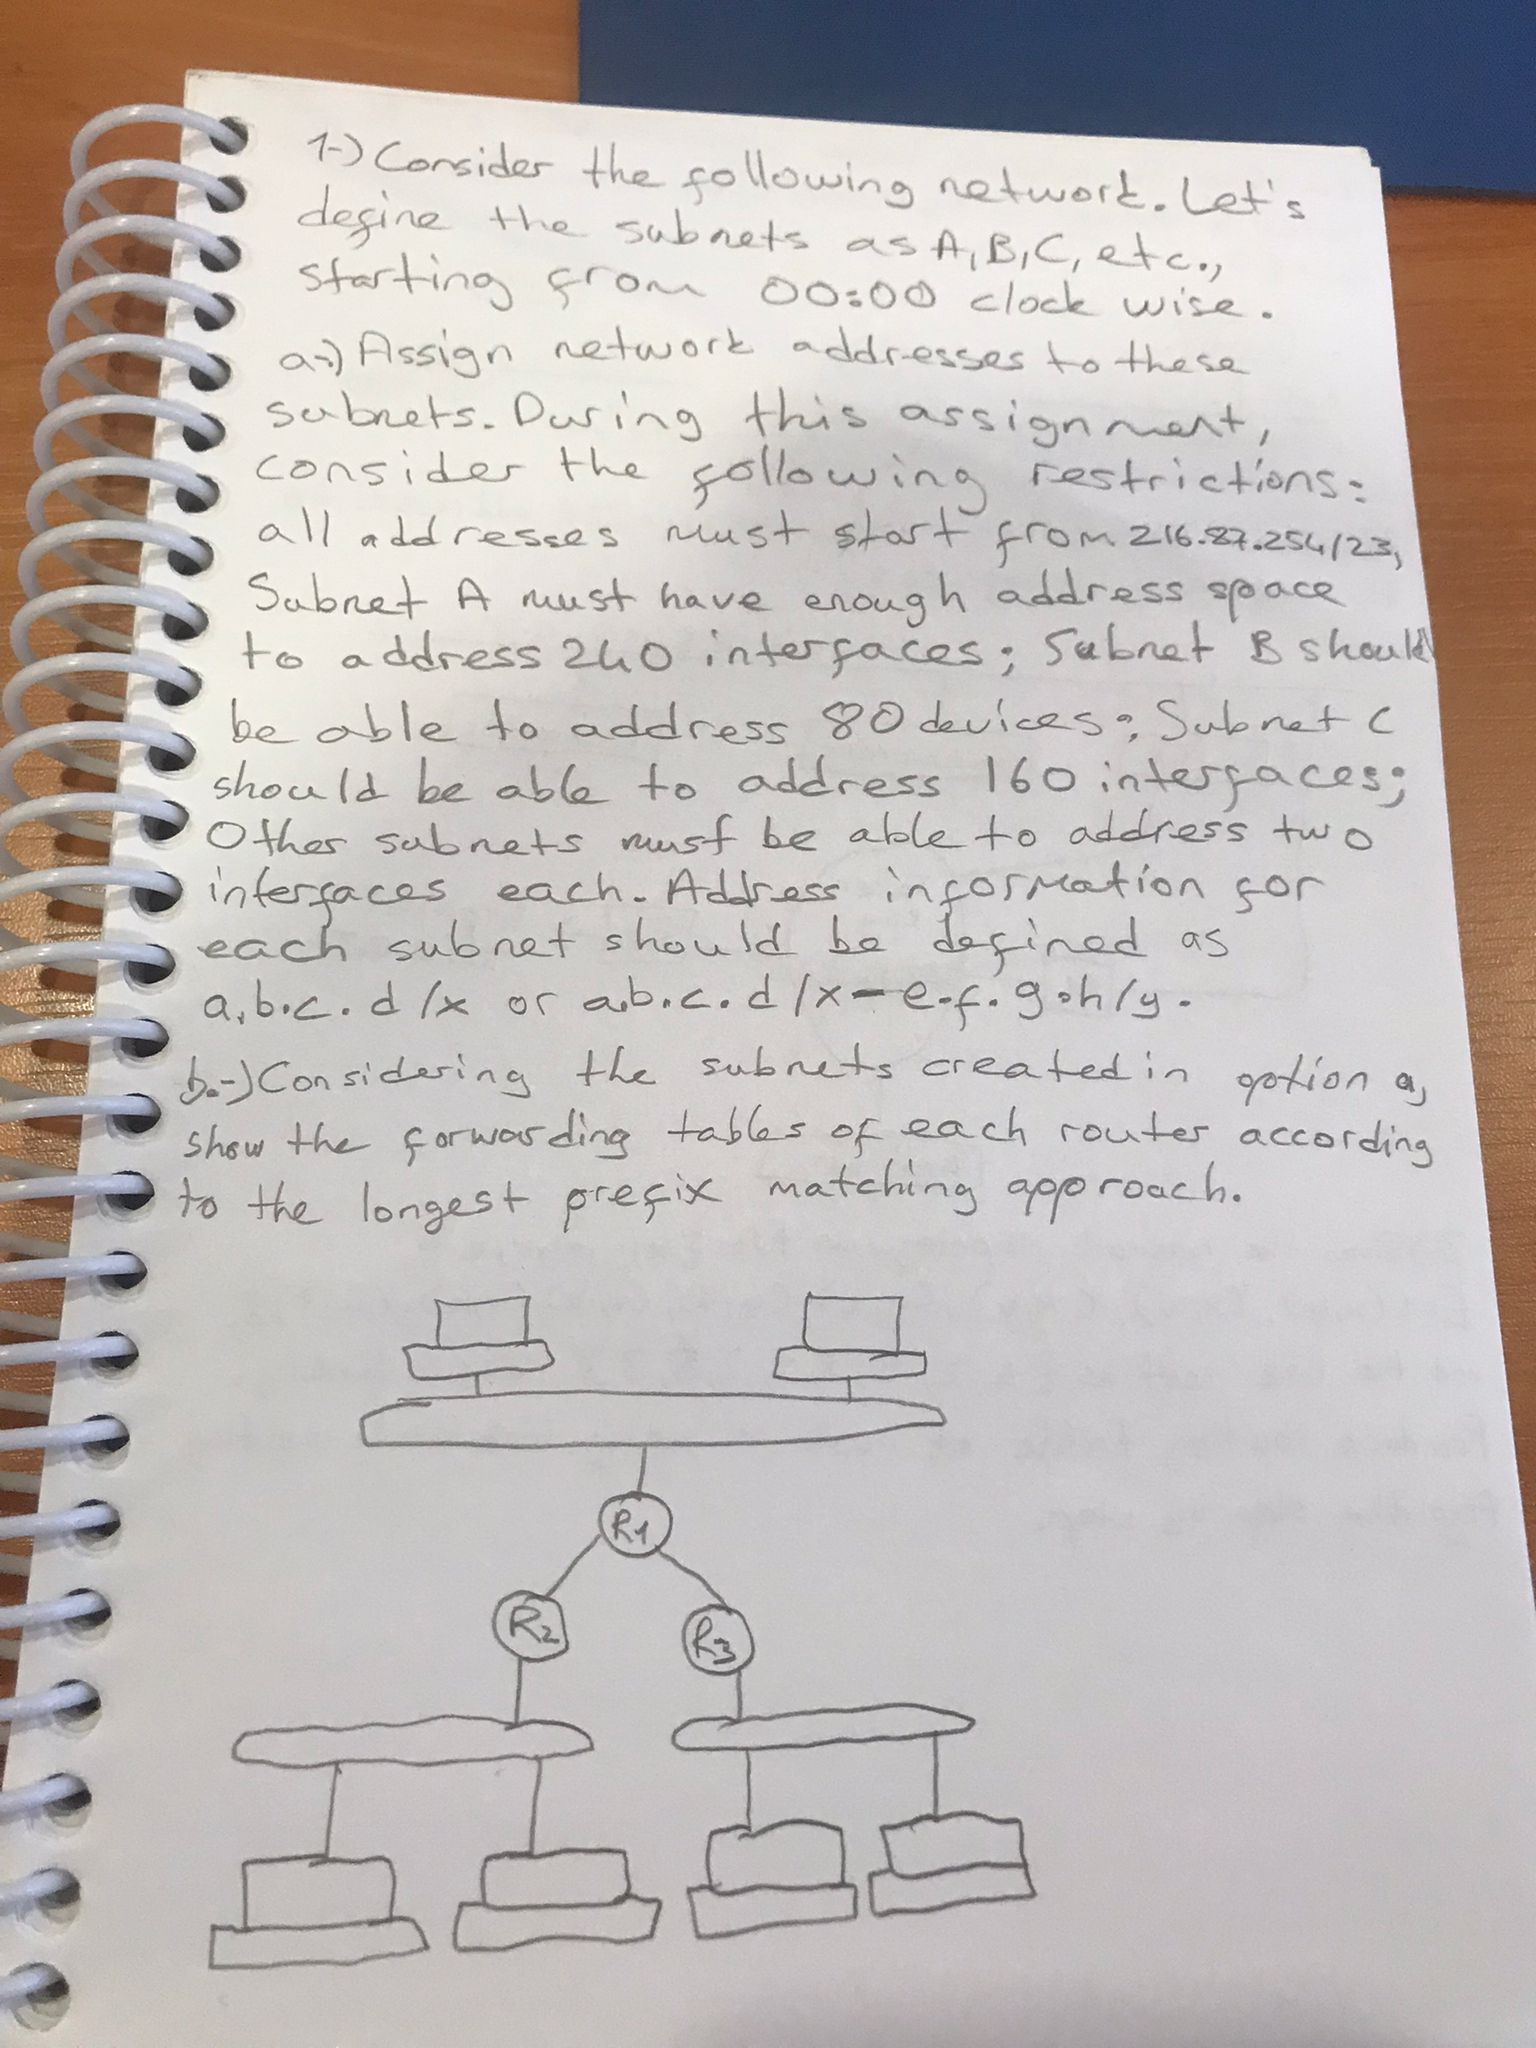 1-) Consider the following network. Let's
define the subnets as A, B, C, etc.,
starting from 00:00 clock wise.
a-) Assign network addresses to these
subnets. During this assignment,
consider the following restrictions:
all addresses must start from 216.87.254/23,
Subnet A must have enough address space
to address 240 interfaces; Subnet B should
be able to address 80 devices; Subnet C
should be able to address 160 interfaces;
Other subnets must be able to address two
interfaces each. Address information for
each subnet should be defined as
a.b.c.d/x or a.b.c.d/x-e.f.g.h/y.
b.-) Considering the subnets created in option a,
show the forwarding tables of each router according
to the longest prefix matching approach.
R1
R2
R3